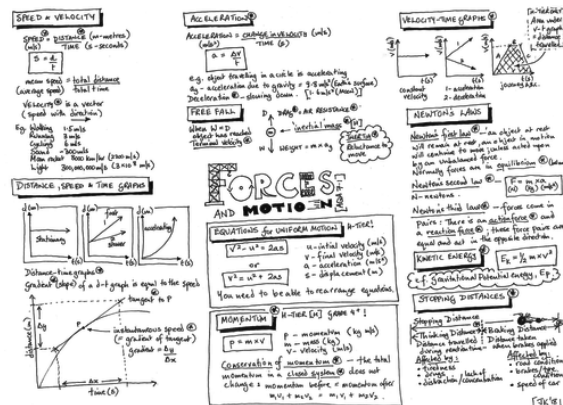 SPEED & VELOCITY
SPEED = DISTANCE (m - metres)
(m/s) TIME (s - seconds)
S = d/t
mean speed = total distance
(average speed) total time
VELOCITY is a vector
(speed with direction)
Eg. Walking 1.5 m/s
Running 3 m/s
Cycling 6 m/s
Sound ~300 m/s
Light 300,000,000 m/s (3 × 10⁸ m/s)
DISTANCE, SPEED & TIME GRAPHS
d(m)
stationary
t(s)
d(m)
fast
slower
t(s)
d(m)
accelerating
t(s)
Distance-time graphs
Gradient (slope) of a d-t graph is equal to the speed
tangent to P
P
Δy
instantaneous speed
(= gradient of tangent)
gradient = Δy
Δx
Δx
distance (m)
time (s)
ACCELERATION
ACCELERATION = CHANGE IN VELOCITY (m/s)
(m/s²) TIME (s)
a = Δv/t
e.g. object travelling in a circle is accelerating
ag - acceleration due to gravity = 9.8 m/s² (Earth surface)
Deceleration - slowing down - [1.6 m/s² (Moon)]
FREE FALL
When W = D
object has reached
Terminal velocity
D DRAG AIR RESISTANCE
inertial mass
W Weight = m × g
INERTIA
Reluctance to
move.
FORCES
AND MOTION
[AQA]
EQUATIONS FOR UNIFORM MOTION H-TIER!
v² - u² = 2as
or
v² = u² + 2as
u - initial velocity (m/s)
v - final velocity (m/s)
a - acceleration (m/s²)
s - displacement (m)
You need to be able to rearrange equations.
MOMENTUM H-TIER [M] GRADE 9!
p = m × v
p - momentum (kg m/s)
m - mass (kg)
v - velocity (m/s)
Conservation of momentum - the total
momentum in a closed system does not
change: momentum before = momentum after
VELOCITY-TIME GRAPHS
constant
velocity
1 - acceleration
2 - deceleration
Area under
v-t graph
= distance
travelled
t(s)
t(s)
t(s)
NEWTON'S LAWS
Newton's first law - an object at rest
will remain at rest, an object in motion
will continue to move (unless acted upon
by an unbalanced force.
Normally forces are in equilibrium
Newton's second law - F = m × a
(N) (kg) (m/s²)
N - newtons.
Newton's third law - forces come in
pairs: There is an action force and
a reaction force: these force pairs are
equal and act in the opposite direction.
KINETIC ENERGY
Ek = ½ m × v²
c.f. gravitational Potential energy, Ep.
STOPPING DISTANCES
Stopping Distance
= Thinking Distance + Braking Distance
Distance travelled Distance taken
during reaction time when brakes applied
Affected by:
• tiredness
• drugs
• distraction / lack of concentration
Affected by:
• road condition
• brakes/tyre condition
• speed of car